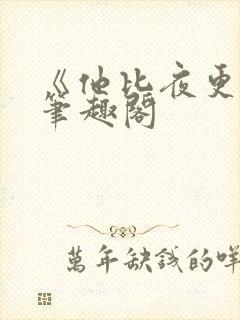 《他比夜更
筆趣閣
萬年缺錢的咩